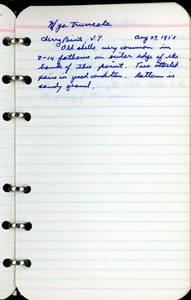 Mya truncata
Cherry Point, V.I. Aug 27, 1950
Old shells very common in
8-14 fathoms on outer edge of the
bank off this point. Two attached
pairs in good condition. Bottom is
sandy gravel.